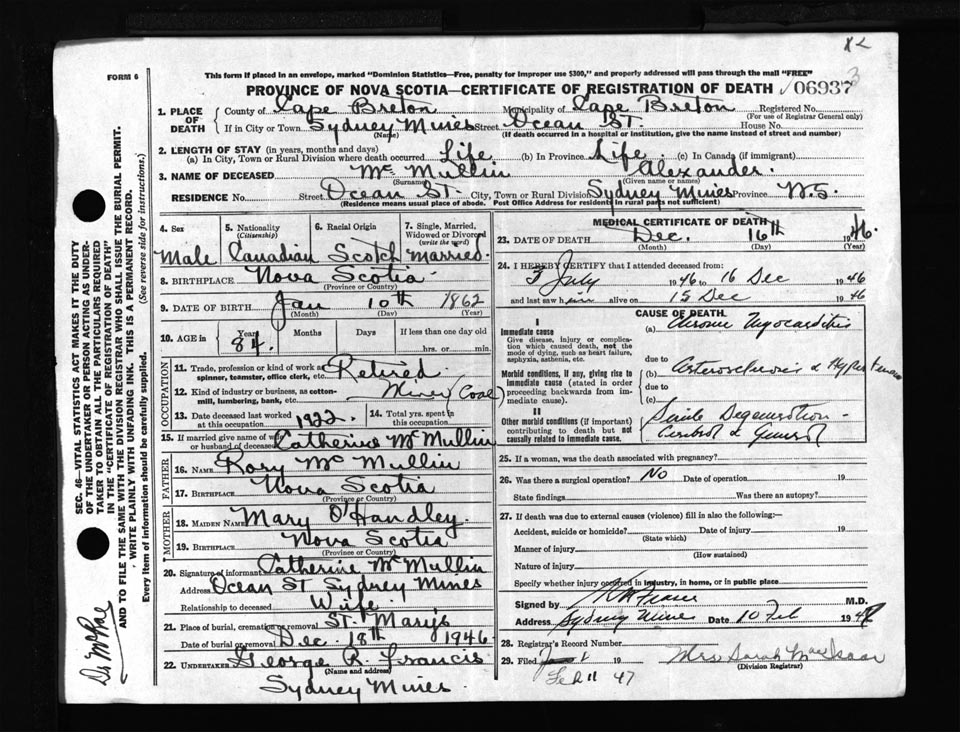 x2
3
FORM 6
This form if placed in an envelope, marked "Dominion Statistics—Free, penalty for improper use $300," and properly addressed will pass through the mail "FREE"
PROVINCE OF NOVA SCOTIA—CERTIFICATE OF REGISTRATION OF DEATH 06937
1. PLACE OF DEATH County of Cape Breton Municipality of Cape Breton Registered No. (For use of Registrar General only)
If in City or Town Sydney Mines (Name) Street Ocean St. House No.
(If death occurred in a hospital or institution, give the name instead of street and number)
2. LENGTH OF STAY (in years, months and days)
(a) In City, Town or Rural Division where death occurred Life (b) In Province Life (c) In Canada (if immigrant)
3. NAME OF DECEASED Mc Mullin (Surname) Alexander. (Given name or names)
RESIDENCE No. Street Ocean St. City, Town or Rural Division Sydney Mines Province N.S.
(Residence means usual place of abode. Post Office Address for residents in rural parts not sufficient)
4. Sex Male
5. Nationality (Citizenship) Canadian
6. Racial Origin Scotch
7. Single, Married, Widowed or Divorced (write the word) Married.
8. BIRTHPLACE Nova Scotia (Province or Country)
9. DATE OF BIRTH Jan (Month) 10th (Day) 1862 (Year)
10. AGE in Years 84. Months Days If less than one day old hrs. or min.
OCCUPATION
11. Trade, profession or kind of work as spinner, teamster, office clerk, etc. Retired.
12. Kind of industry or business, as cotton-mill, lumbering, bank, etc. Miner Coal
13. Date deceased last worked at this occupation 1922. 14. Total yrs. spent in this occupation
15. If married give name of wife or husband of deceased Catherine McMullin
FATHER
16. NAME Rory Mc Mullin
17. BIRTHPLACE Nova Scotia (Province or Country)
MOTHER
18. MAIDEN NAME Mary O'Handley.
19. BIRTHPLACE Nova Scotia (Province or Country)
20. Signature of informant Catherine McMullin
Address Ocean St Sydney Mines
Relationship to deceased Wife
21. Place of burial, cremation or removal St. Mary's
Date of burial or removal Dec. 18th 1946.
22. UNDERTAKER George R. Francis (Name and address)
Sydney Mines.
MEDICAL CERTIFICATE OF DEATH
23. DATE OF DEATH Dec. (Month) 16th (Day) 1946. (Year)
24. I HEREBY CERTIFY that I attended deceased from:
3 July 1946 to 16 Dec 1946
and last saw him alive on 15 Dec 1946
CAUSE OF DEATH.
I
Immediate cause (a) Myocarditis
Give disease, injury or complication which caused death, not the mode of dying, such as heart failure, asphyxia, asthenia, etc.
due to
Morbid conditions, if any, giving rise to immediate cause (stated in order proceeding backwards from immediate cause). (b) Arterosclerosis & Hypertension
due to
(c)
II
Other morbid conditions (if important) contributing to death but not causally related to immediate cause. Senile Degeneration - Cerebral & General
25. If a woman, was the death associated with pregnancy?
26. Was there a surgical operation? No Date of operation 19
State findings Was there an autopsy?
27. If death was due to external causes (violence) fill in also the following:—
Accident, suicide or homicide? (State which) Date of injury 19
Manner of injury (How sustained)
Nature of injury
Specify whether injury occurred in industry, in home, or in public place
Signed by Fraser M.D.
Address Sydney Mines Date 10 Feb 1947
28. Registrar's Record Number
29. Filed 19 Mrs Sarah MacIsaac (Division Registrar)
Feb 11 47
SEC. 46—VITAL STATISTICS ACT MAKES IT THE DUTY
OF THE UNDERTAKER OR PERSON ACTING AS UNDER-
TAKER TO OBTAIN ALL THE PARTICULARS REQUIRED
IN THE "CERTIFICATE OF REGISTRATION OF DEATH"
AND TO FILE THE SAME WITH THE DIVISION REGISTRAR WHO SHALL ISSUE THE BURIAL PERMIT.
WRITE PLAINLY WITH UNFADING INK. THIS IS A PERMANENT RECORD.
Every item of information should be carefully supplied. (See reverse side for instructions.)
Dr McRae